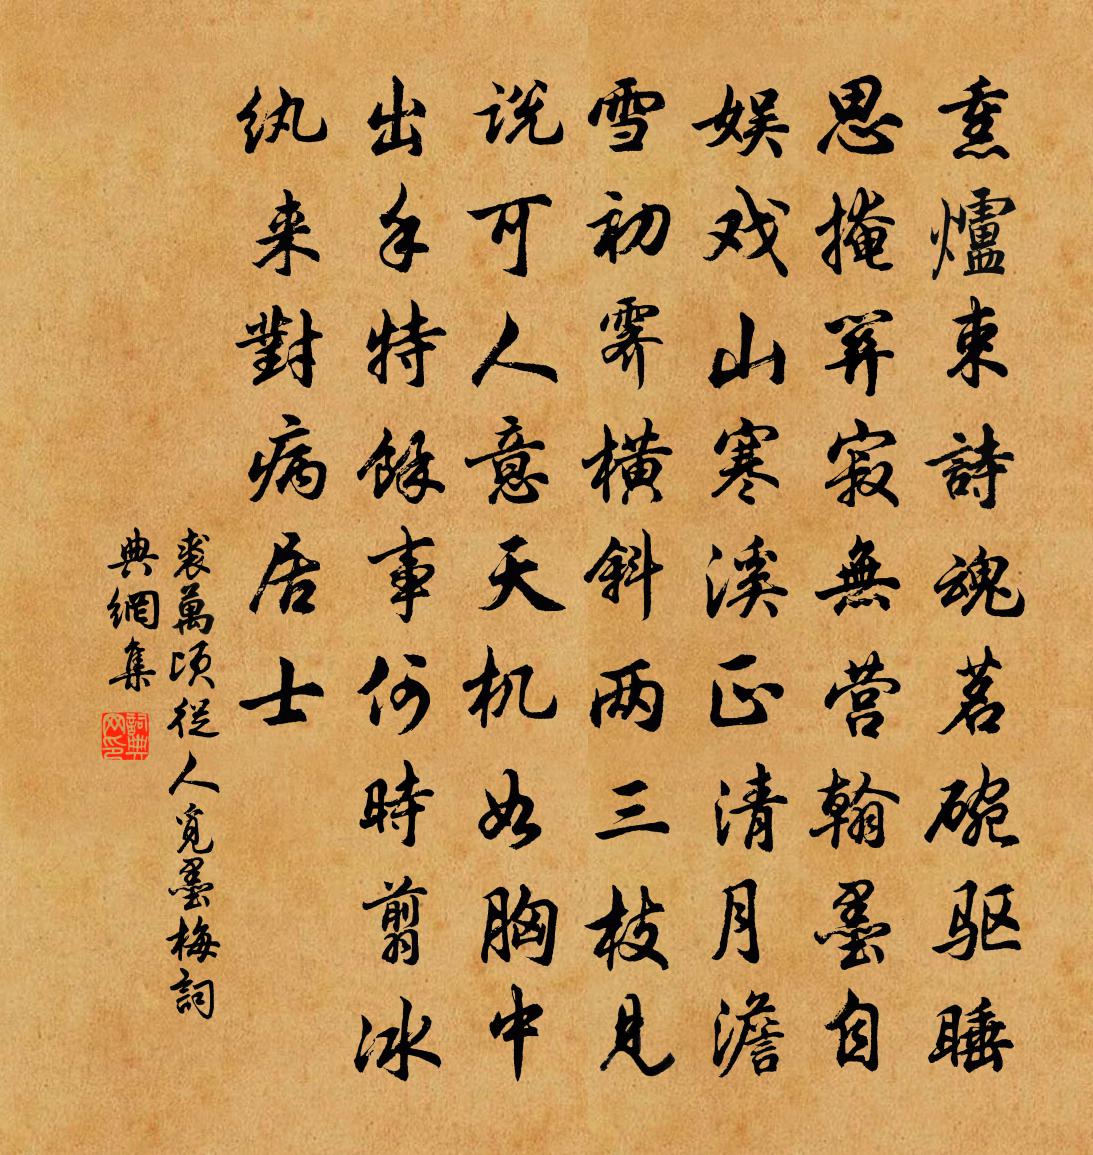 熏爐束詩魂茗碗驱睡
思掩關寂無营翰墨自
娱戏山寒溪正清月澹
雪初霽横斜两三枝見
说可人意天机如胸中
出手特餘事何時翦冰
纨来對病居士
裘萬顷從人覓墨梅詞
典網集
詞典网印